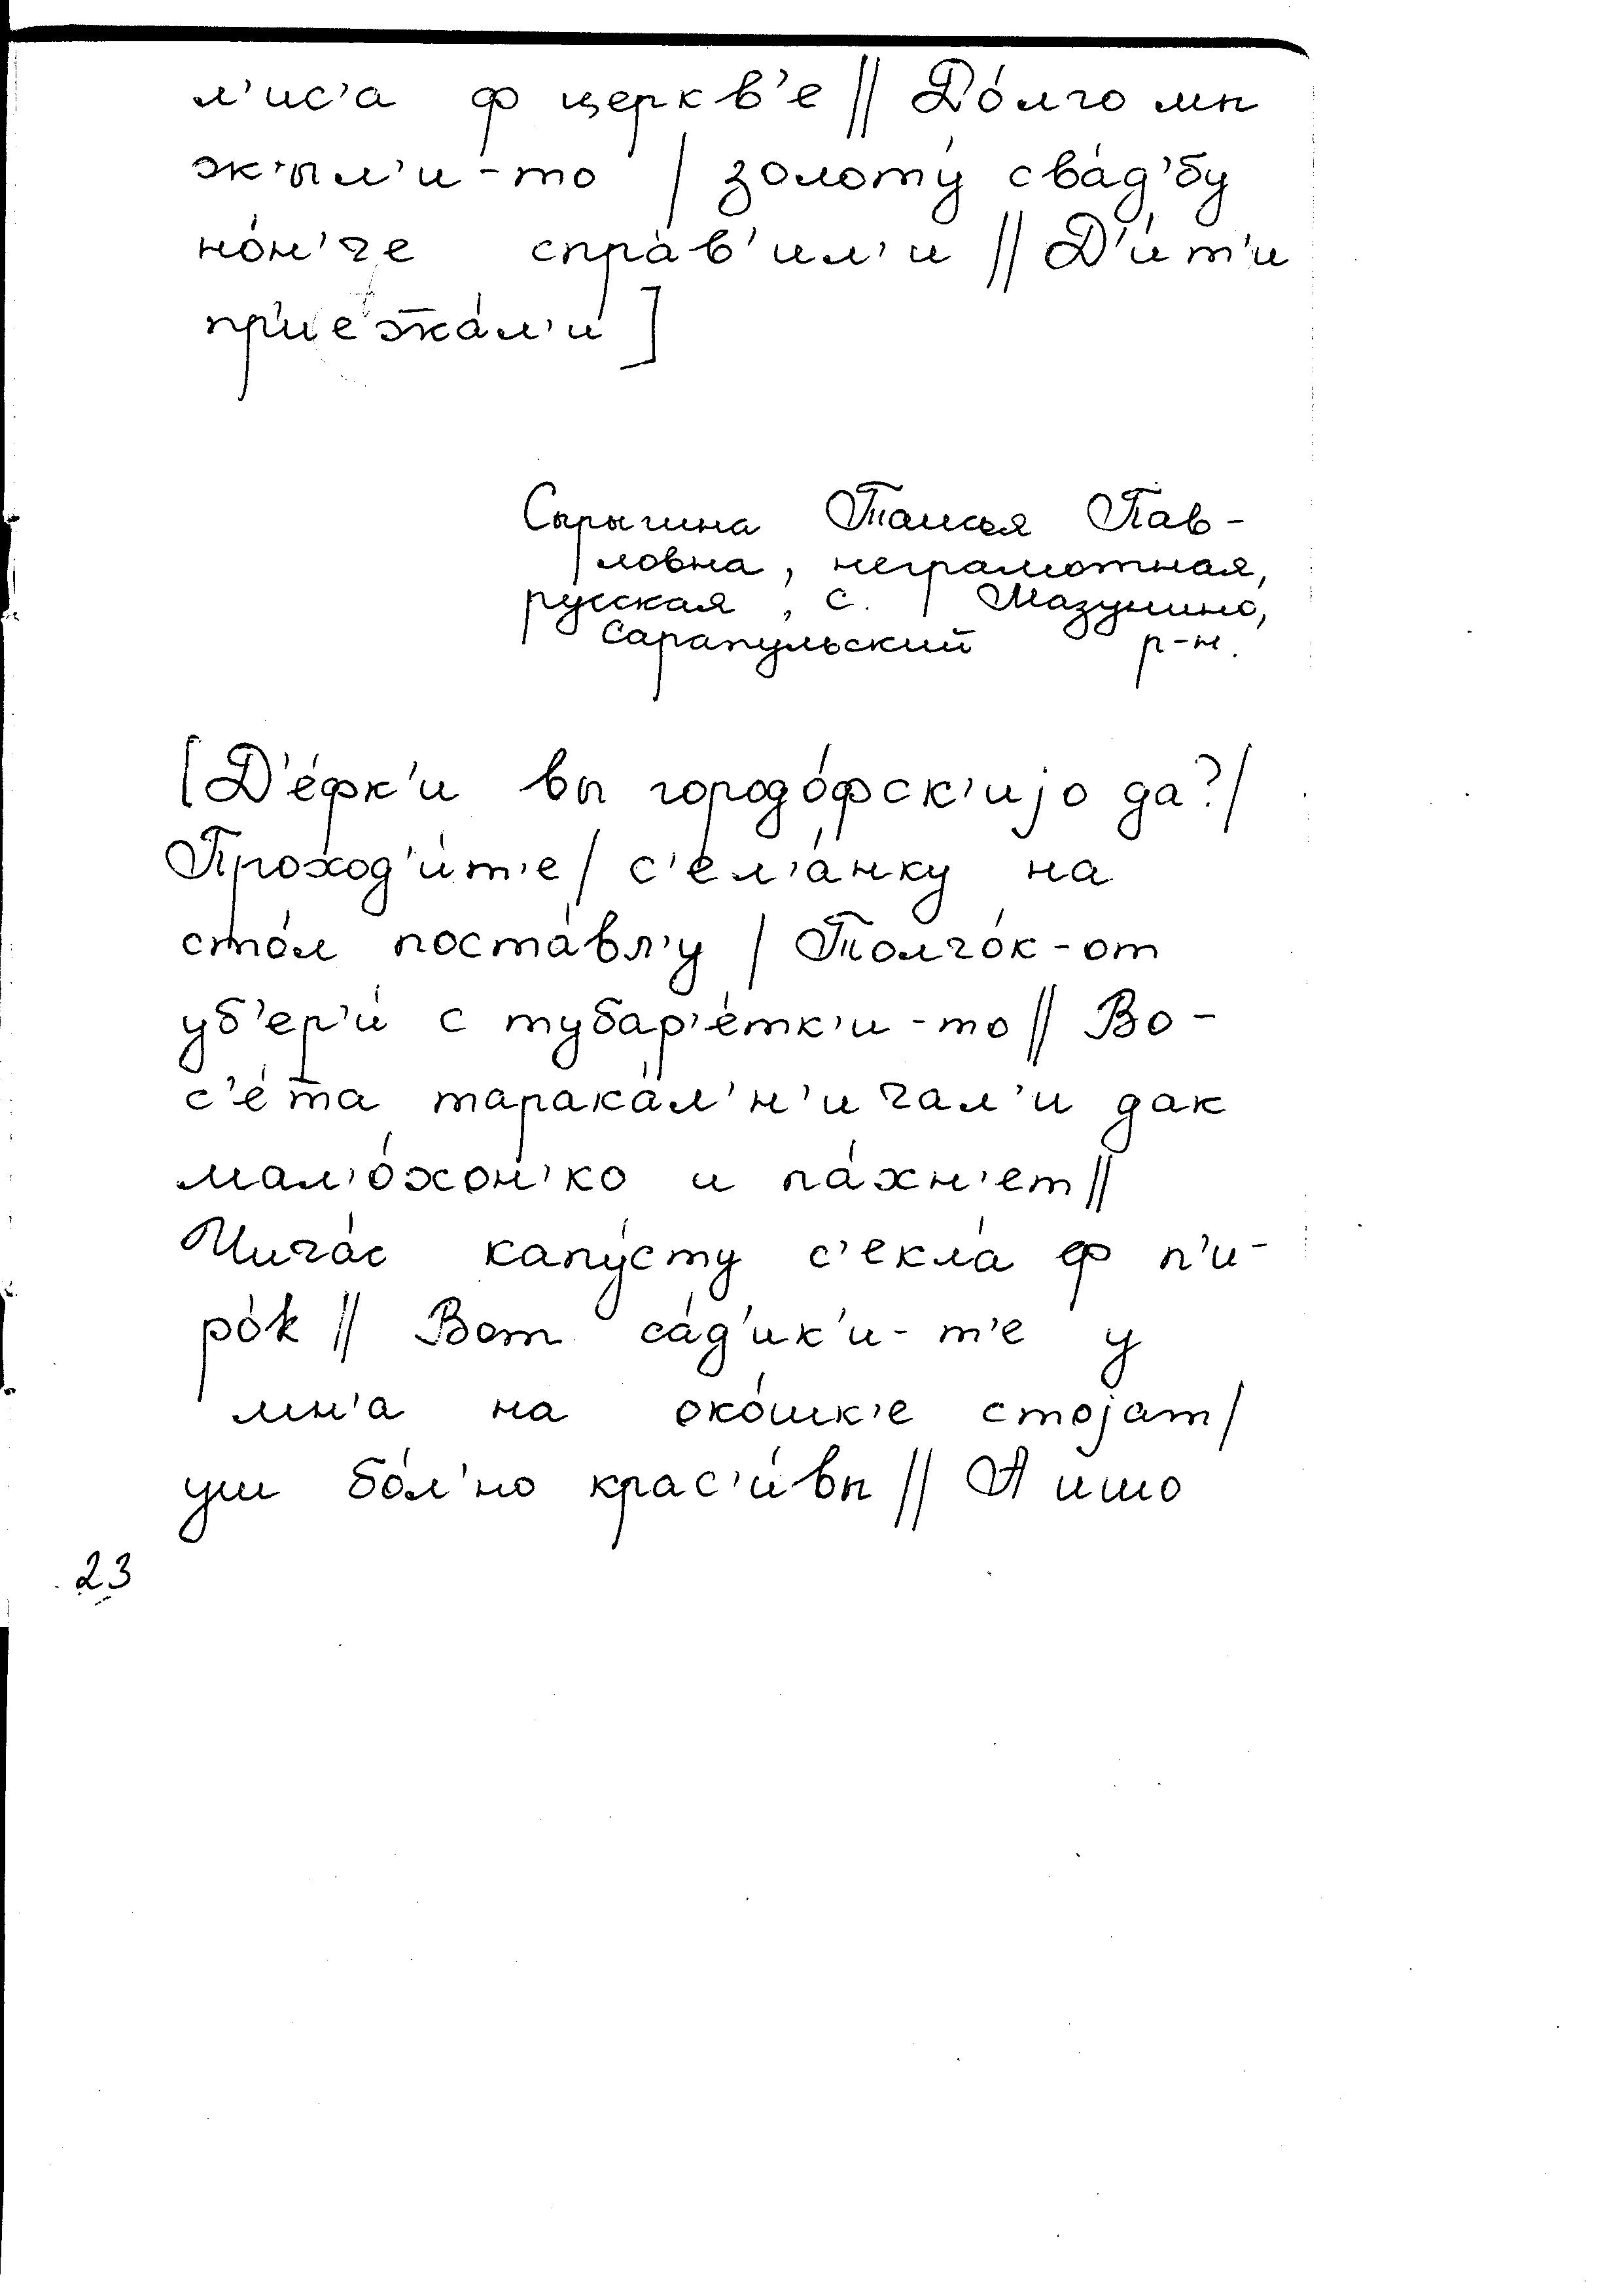 л'ис'а ф церкв'е || До́лго мы
ж'ыл'и-то | золоту́ сва́д'бу
но́н'че спра́в'ил'и || Д'и́т'и
пр'иеж̄а́л'и]
Сырыгина Таисья Пав-
ловна, неграмотная,
русская, с. Мазунино,
Сарапульский р-н.
[Д'е́фк'и вы городо́фск'иjо да? |
Проход'и́т'е | с'ел'а́нку на
сто́л поста́вл'у | Толчо́к-от
уб'ер'и́ с тубар'е́тк'и-то || Во-
с'е́т̄а таракáл'н'ичал'и дак
мал'о́хон'ко и па́хн'ет ||
Чича́с капу́сту с'екла́ ф п'и-
ро́к || Вот са́д'ик'и-т'е у
мн'а на око́шк'е стоjат |
уш бо́л'но крас'и́вы || А ишо
23